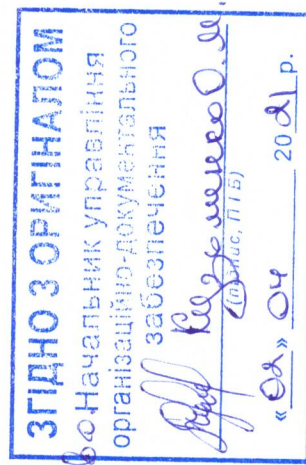 ЗГІДНО З ОРИГІНАЛОМ
Начальник управління
організаційно-документального
забезпечення
О.М.
(підпис, ПІБ)
«02» 04 2021 р.